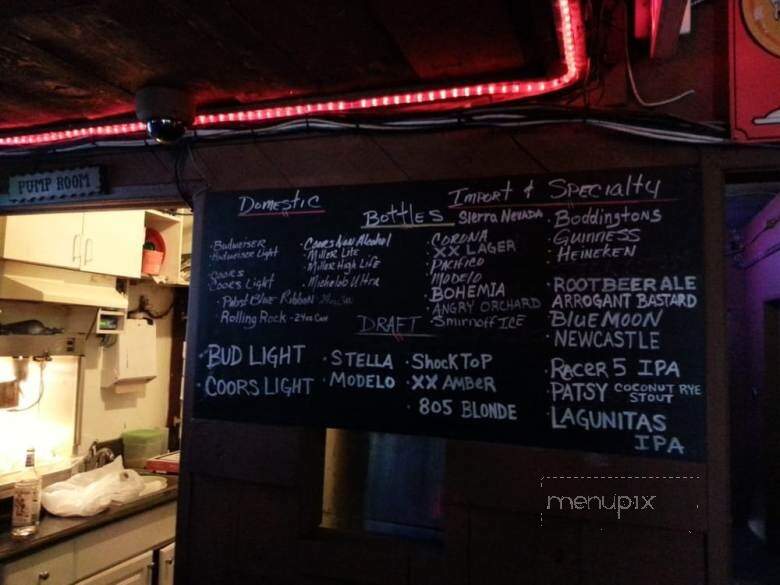 PUMP ROOM
DOMESTIC
BOTTLES
IMPORT & SPECIALTY
· BUDWEISER
· BUDWEISER LIGHT
· COORS
· COORS LIGHT
· PABST BLUE RIBBON
· ROLLING ROCK - 24oz CAN
· COORS NON ALCOHOL
· MILLER LITE
· MILLER HIGH LIFE
· MICHELOB ULTRA
SIERRA NEVADA
· CORONA
· XX LAGER
· PACIFICO
· MODELO
· BOHEMIA
· ANGRY ORCHARD
· SMIRNOFF ICE
· BODDINGTONS
· GUINNESS
· HEINEKEN
· ROOTBEER ALE
ARROGANT BASTARD
· BLUE MOON
· NEWCASTLE
· RACER 5 IPA
· PATSY COCONUT RYE
STOUT
· LAGUNITAS
IPA
DRAFT
· BUD LIGHT
· COORS LIGHT
· STELLA
· MODELO
· SHOCKTOP
· XX AMBER
· 805 BLONDE
menupix